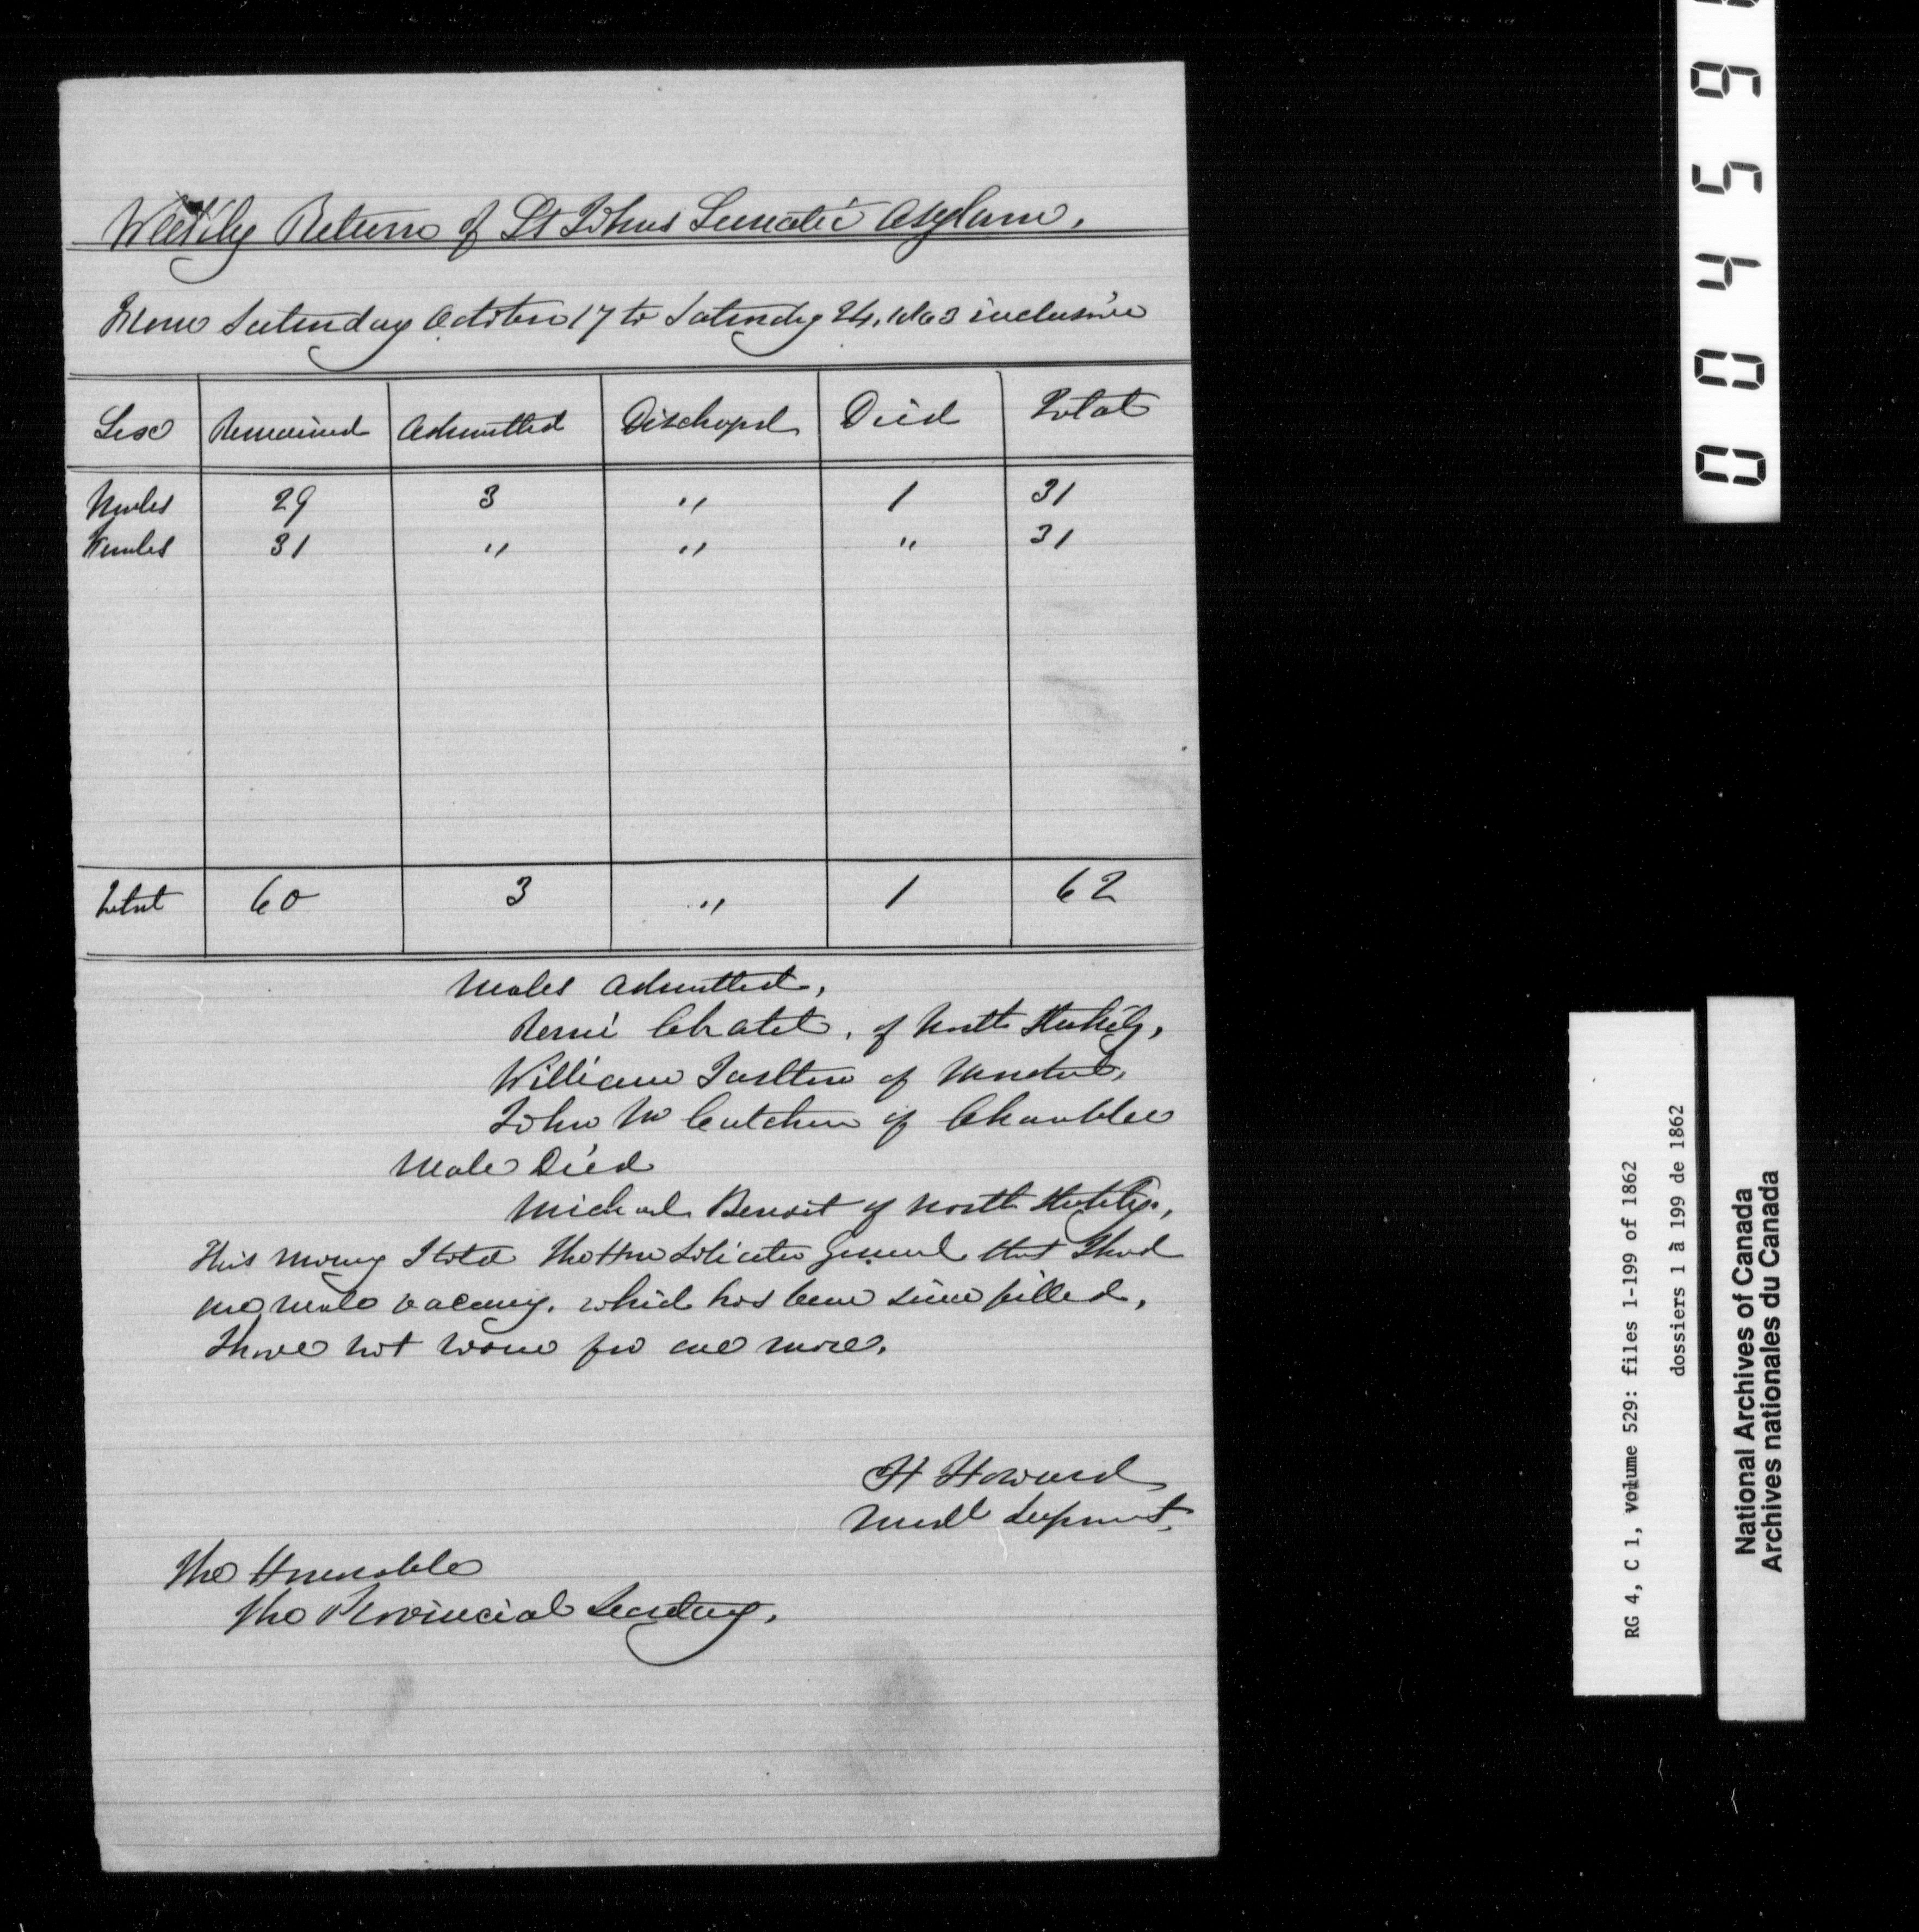 Weekly Return of St Johns Lunatic Asylum.
From Saturday October 17 to Saturday 24, 1863 inclusive
Sex Remained Admitted Discharged Died Total
Males 29 3 " 1 31
Females 31 " " " 31
Total 60 3 " 1 62
Males Admitted,
Remi Chatel, of North
William of Montreal,
John Mc Cutchen of Chamblee
Male Died
Michael Benoit of North
This morng I told The Hon Soliciter General that I had
one male vacancy. which has been since filled,
I have not room for one more.
H Howard
Medl Supernt.
The Honorable
The Provincial Secretary.
0 0 4 5 9
RG 4, C 1, volume 529: files 1-199 of 1862
dossiers 1 à 199 de 1862
National Archives of Canada
Archives nationales du Canada